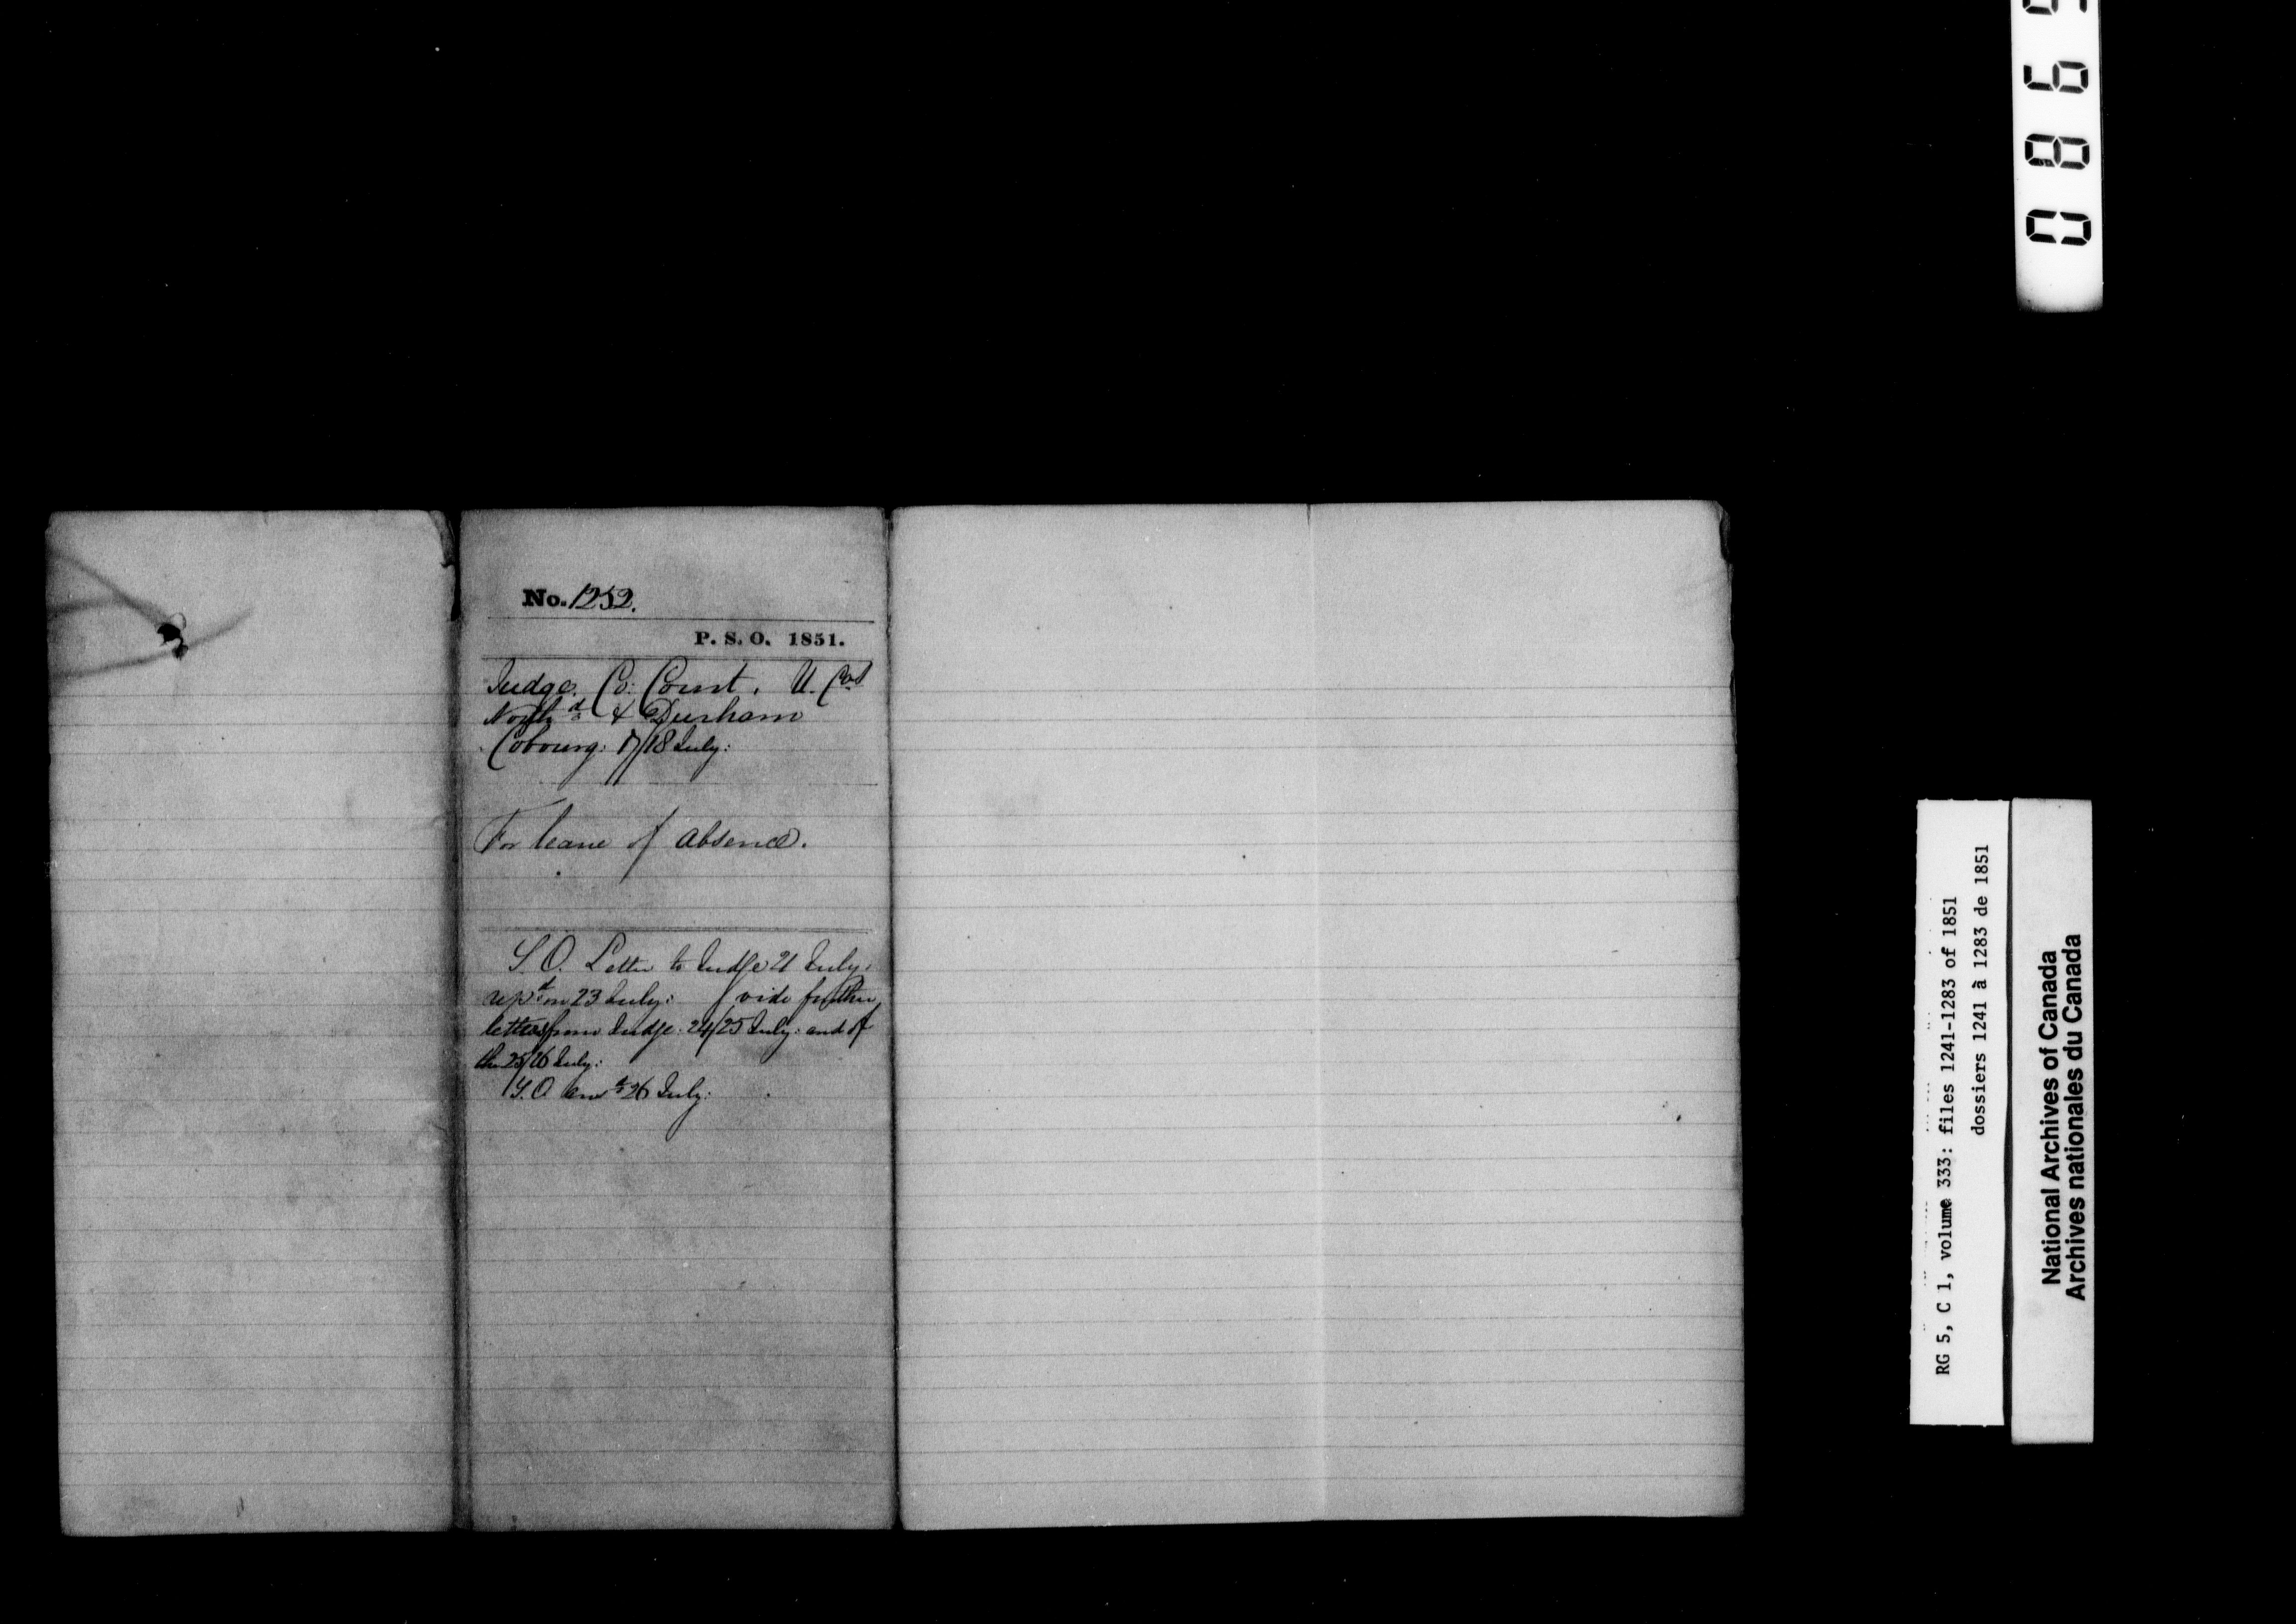 No. 1252.
P. S. O. 1851.
Judge. Co: Court, U. Cos
North d & Durham
Cobourg: 17/18 July:
For leave of absence.
S. O. Letter to Judge 21 July:
rep d on 23 July: vide further
letters from Judge: 24/25 July: and of
the 25/26 July:
S. O 26 July:
RG 5, C 1, volume 333: files 1241-1283 of 1851
dossiers 1241 à 1283 de 1851
National Archives of Canada
Archives nationales du Canada